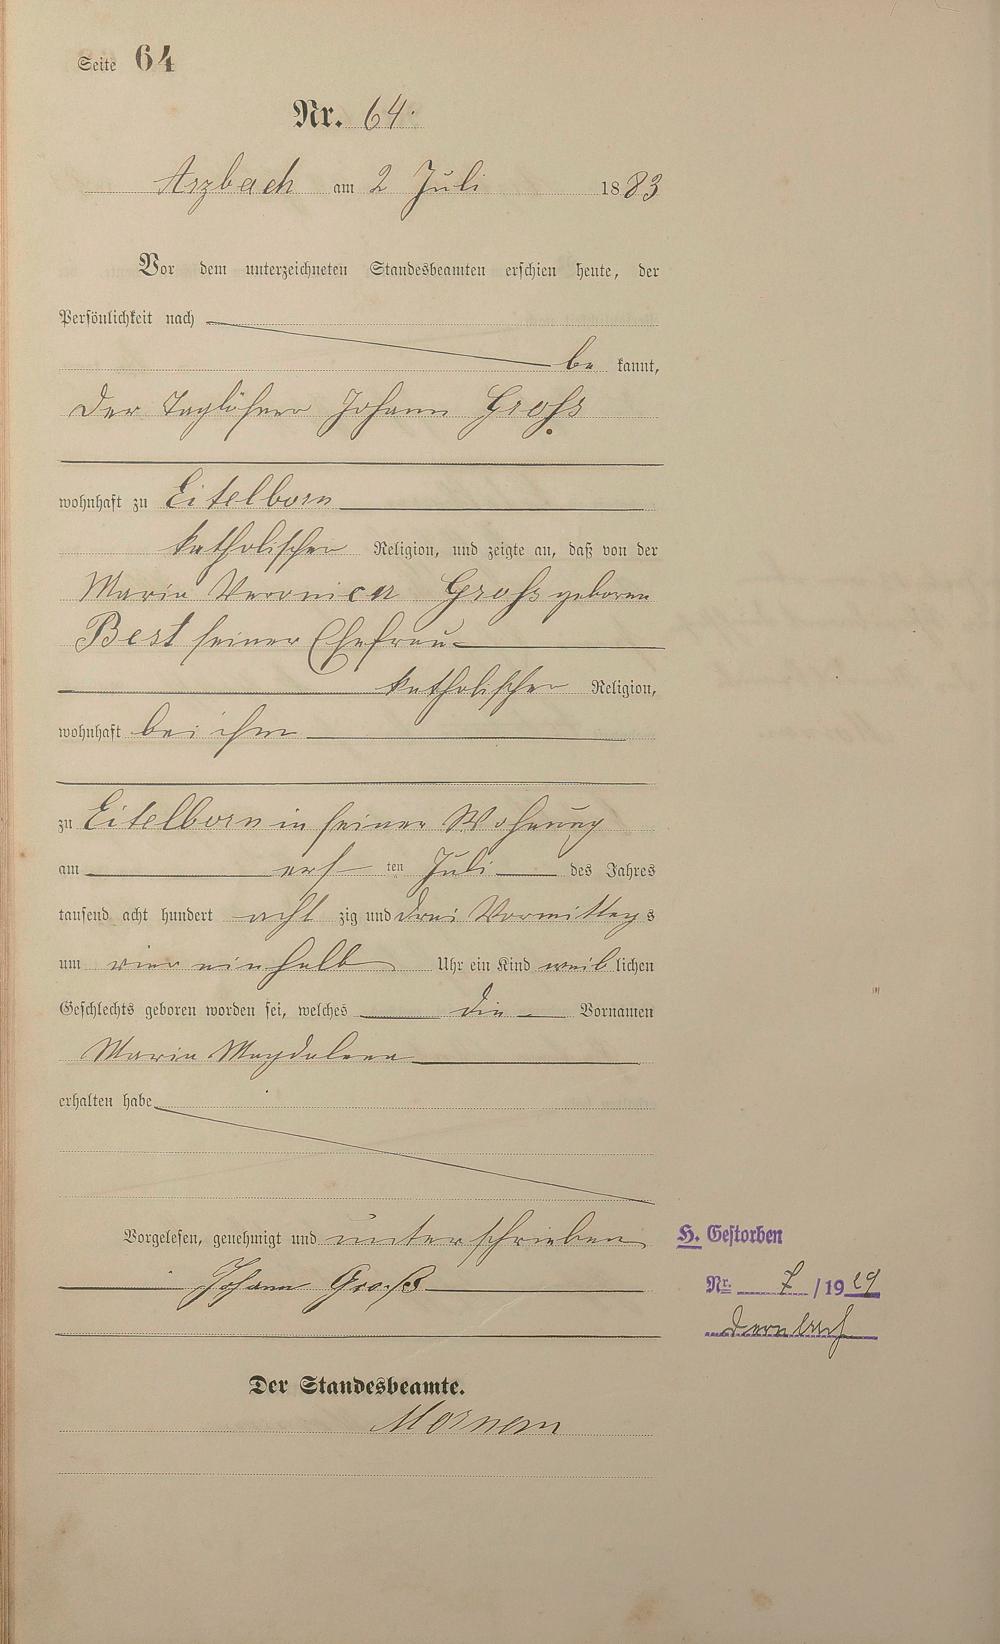 Seite 64
Nr. 64.
Arzbach am 2 Juli 1883
Vor dem unterzeichneten Standesbeamten erschien heute, der
Persönlichkeit nach
be kannt,
der Taglöhner Johann Groß
wohnhaft zu Eitelborn
katholischer Religion, und zeigte an, daß von der
Maria Veronica Groß geboren
Best seiner Ehefrau
katholischer Religion,
wohnhaft bei ihm
zu Eitelborn in seiner Wohnung
am ers ten Juli des Jahres
tausend acht hundert acht zig und drei Vormittags
um vier ein halb Uhr ein Kind weib lichen
Geschlechts geboren worden sei, welches die Vornamen
Maria Magdalena
erhalten habe
Vorgelesen, genehmigt und unterschrieben
Johann Groß
H. Gestorben
Nr. 7 / 1929
Dernbach
Der Standesbeamte.